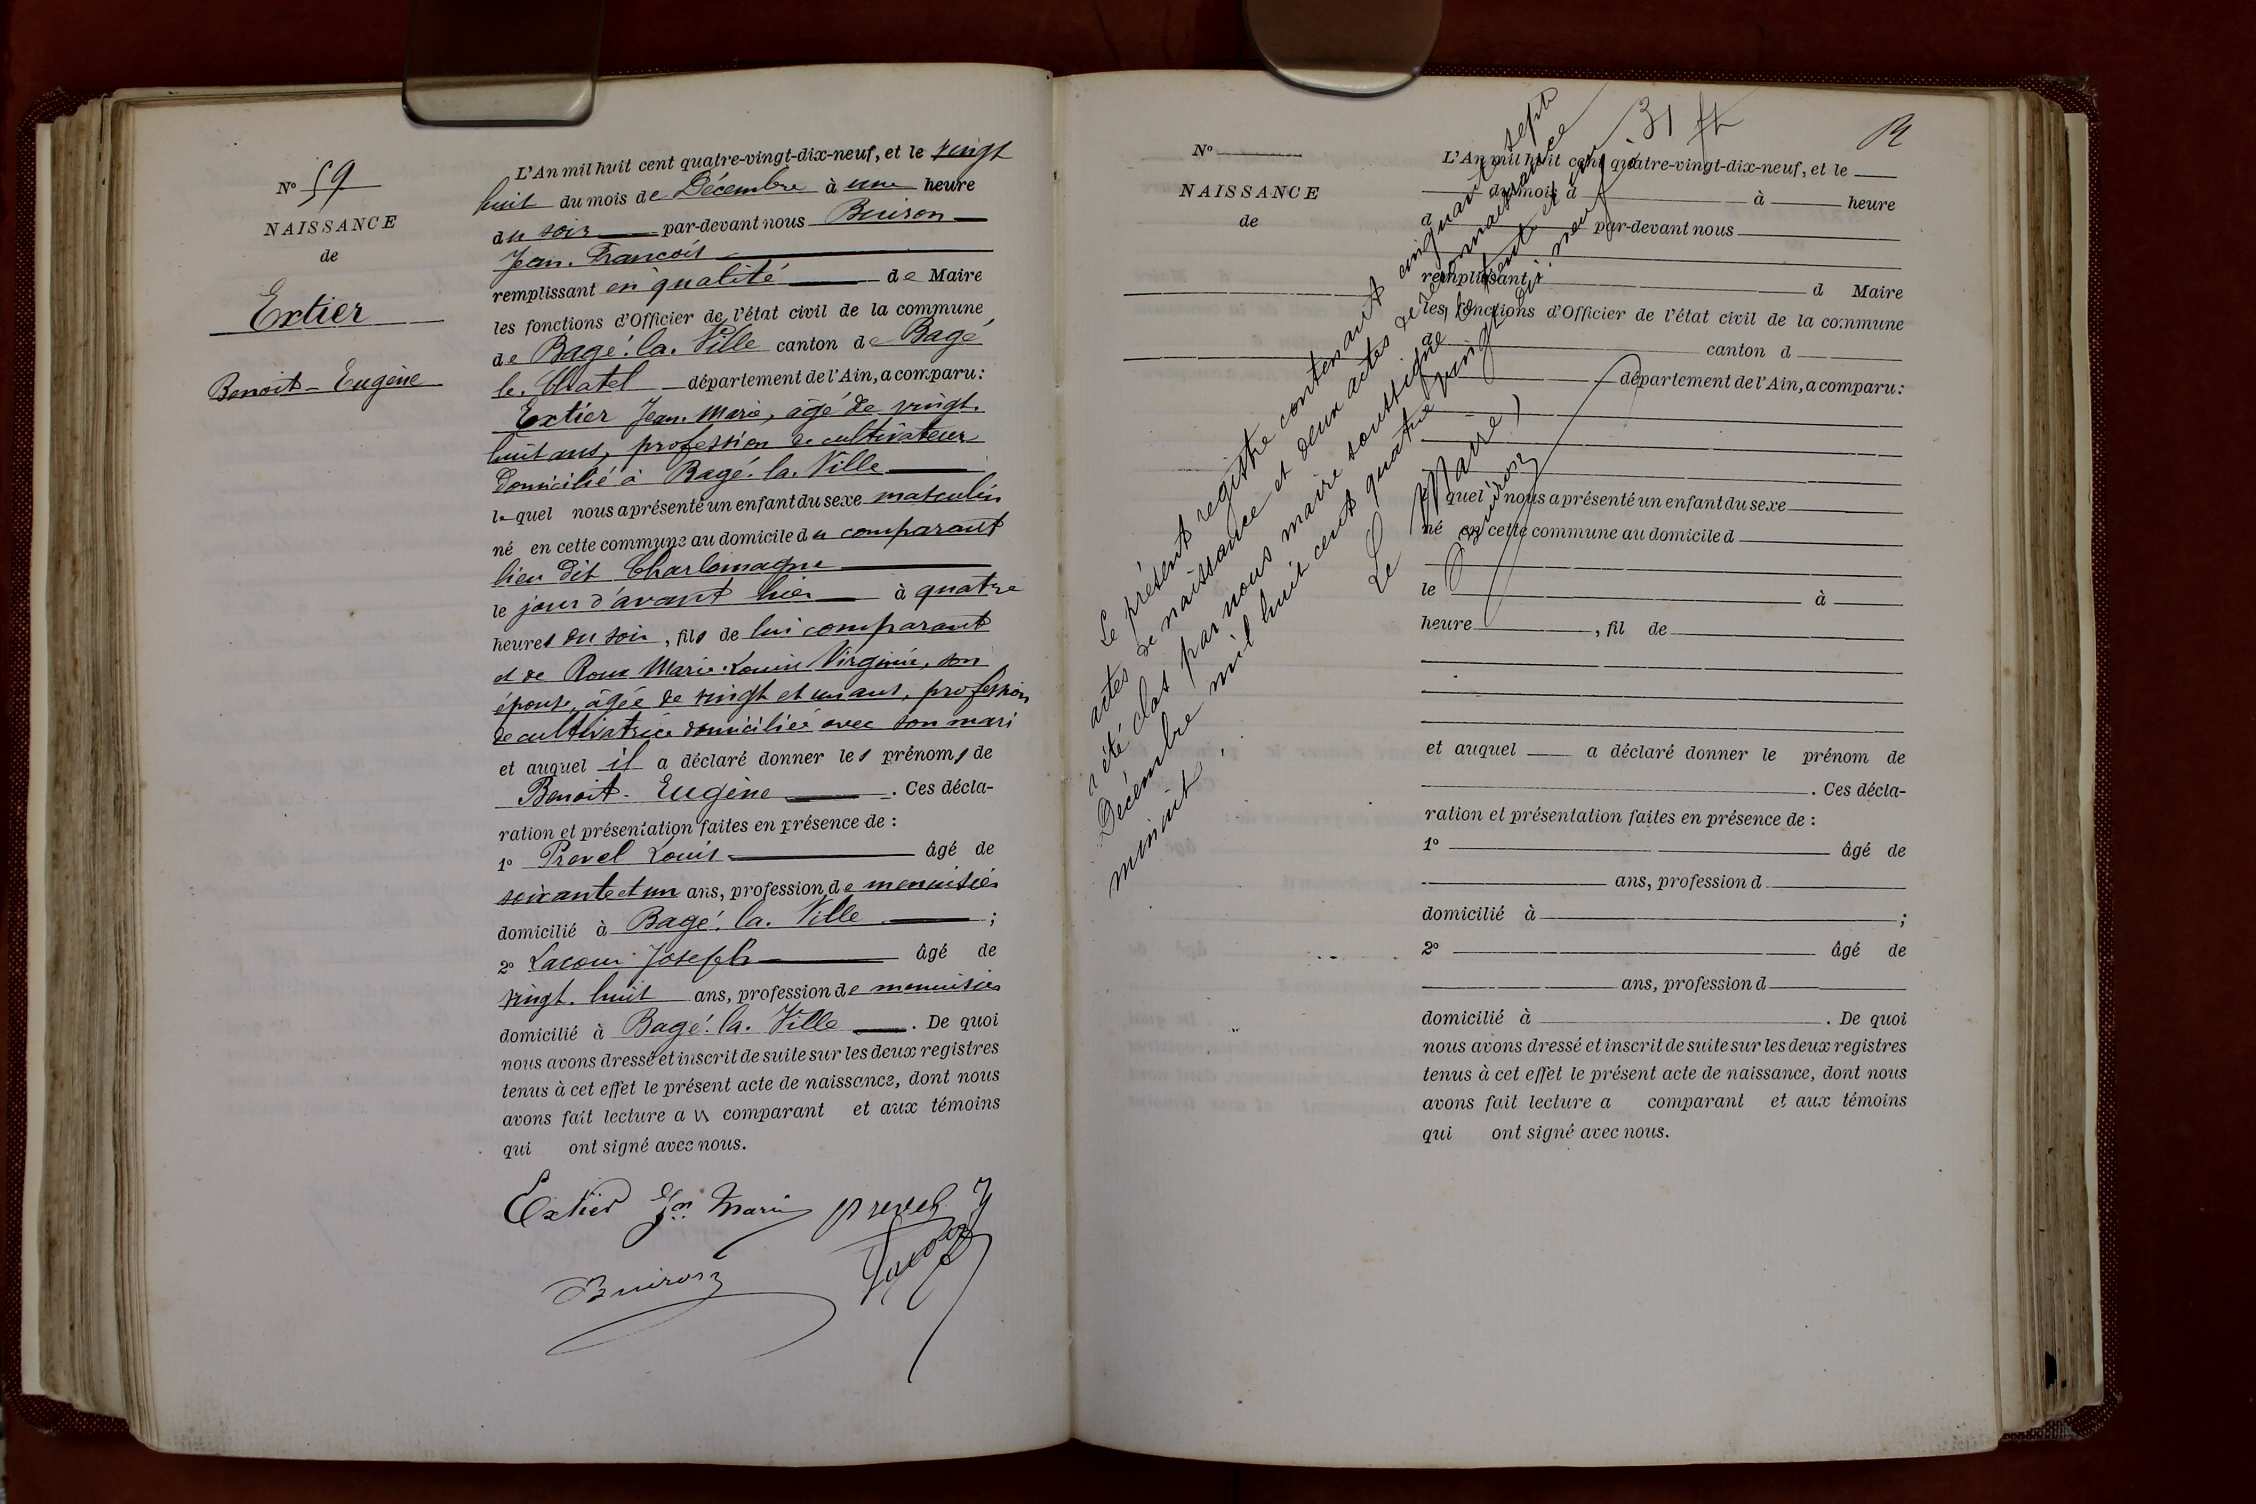 N° 59
NAISSANCE
de
Extier
Benoit - Eugène
L'An mil huit cent quatre-vingt-dix-neuf, et le vingt
huit du mois de Décembre à une heure
du soir par-devant nous Buiron
Jean. François
remplissant en qualité de Maire
les fonctions d'Officier de l'état civil de la commune
de Bagé. la. Ville canton de Bagé
le. Chatel département de l'Ain, a comparu:
Extier Jean. Marie, âgé de vingt.
huit ans, profession de cultivateur
domicilié à Bagé. la. Ville
lequel nous a présenté un enfant du sexe masculin
né en cette commune au domicile du comparant
lieu dit Charlemagne
le jour d'avant hier à quatre
heures du soir, fils de lui comparant
et de Roux Marie. Louise Virginie, son
épouse, âgée de vingt et un ans, profession
de cultivatrice domiciliée avec son mari
et auquel il a déclaré donner les prénoms de
Benoit. Eugène. Ces décla-
ration et présentation faites en présence de :
1° Prevel Louis âgé de
soixante et un ans, profession de menuisier
domicilié à Bagé. la. Ville ;
2° Lacour Joseph âgé de
vingt. huit ans, profession de menuisier
domicilié à Bagé. la. Ville. De quoi
nous avons dressé et inscrit de suite sur les deux registres
tenus à cet effet le présent acte de naissance, dont nous
avons fait lecture au comparant et aux témoins
qui ont signé avec nous.
Extier Jn Marie prevel
Buiron Lacour
31
N°
NAISSANCE
de
L'An mil huit cent quatre-vingt-dix-neuf, et le
du mois d à heure
d par-devant nous
remplissant d Maire
les fonctions d'Officier de l'état civil de la commune
d canton d
département de l'Ain, a comparu:
quel nous a présenté un enfant du sexe
né en cette commune au domicile d
le à
heure , fil de
et auquel a déclaré donner le prénom de
. Ces décla-
ration et présentation faites en présence de :
1° âgé de
ans, profession d
domicilié à ;
2° âgé de
ans, profession d
domicilié à . De quoi
nous avons dressé et inscrit de suite sur les deux registres
tenus à cet effet le présent acte de naissance, dont nous
avons fait lecture a comparant et aux témoins
qui ont signé avec nous.
Le présent registre contenant cinquante sept
actes de naissance et deux actes de reconnaissance
a été clos par nous maire soussigné le trente et un
Décembre mil huit cent quatre vingt dix. neuf à
minuit.
Le Maire,
Buiron